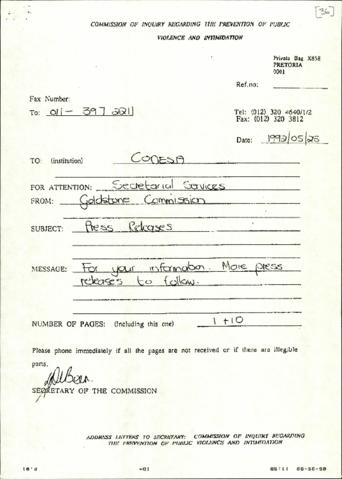 [36]
COMMISSION OF INQUIRY REGARDING THE PREVENTION OF PUBLIC
VIOLENCE AND INTIMIDATION
Private Bag X858
PRETORIA
0001
Ref.no:
Fax Number:
To: 011 - 397 2211
Tel: (012) 320 4640/1/2
Fax: (012) 320 3812
Date: 1992/05/28
TO: (institution) CODESA
FOR ATTENTION: Secretarial Services
FROM: Goldstone Commission
SUBJECT: Press Releases
MESSAGE: For your information. More press
releases to follow.
NUMBER OF PAGES: (including this one) 1 + 10
Please phone immediately if all the pages are not received or if there are illegible
parts.
SECRETARY OF THE COMMISSION
ADDRESS LETTERS TO SECRETARY: COMMISSION OF INQUIRY REGARDING
THE PREVENTION OF PUBLIC VIOLENCE AND INTIMIDATION